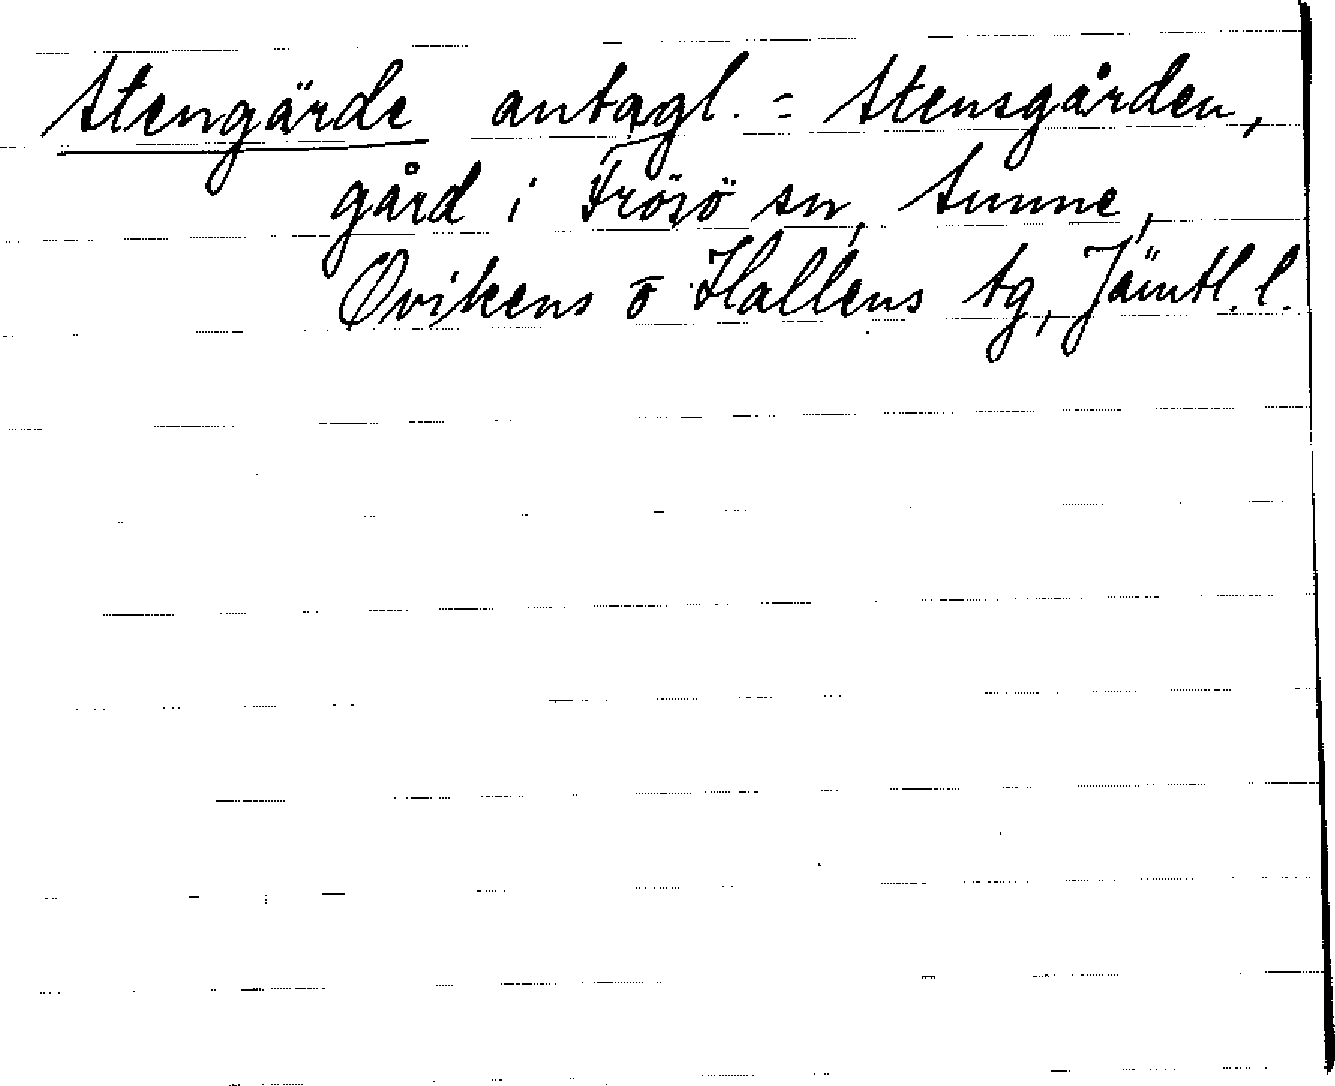 Stengärde antagl. = Stensgården,
gård i Frösö sn, Sunne,
Ovikens o Hallens tg, Jämtl. l.